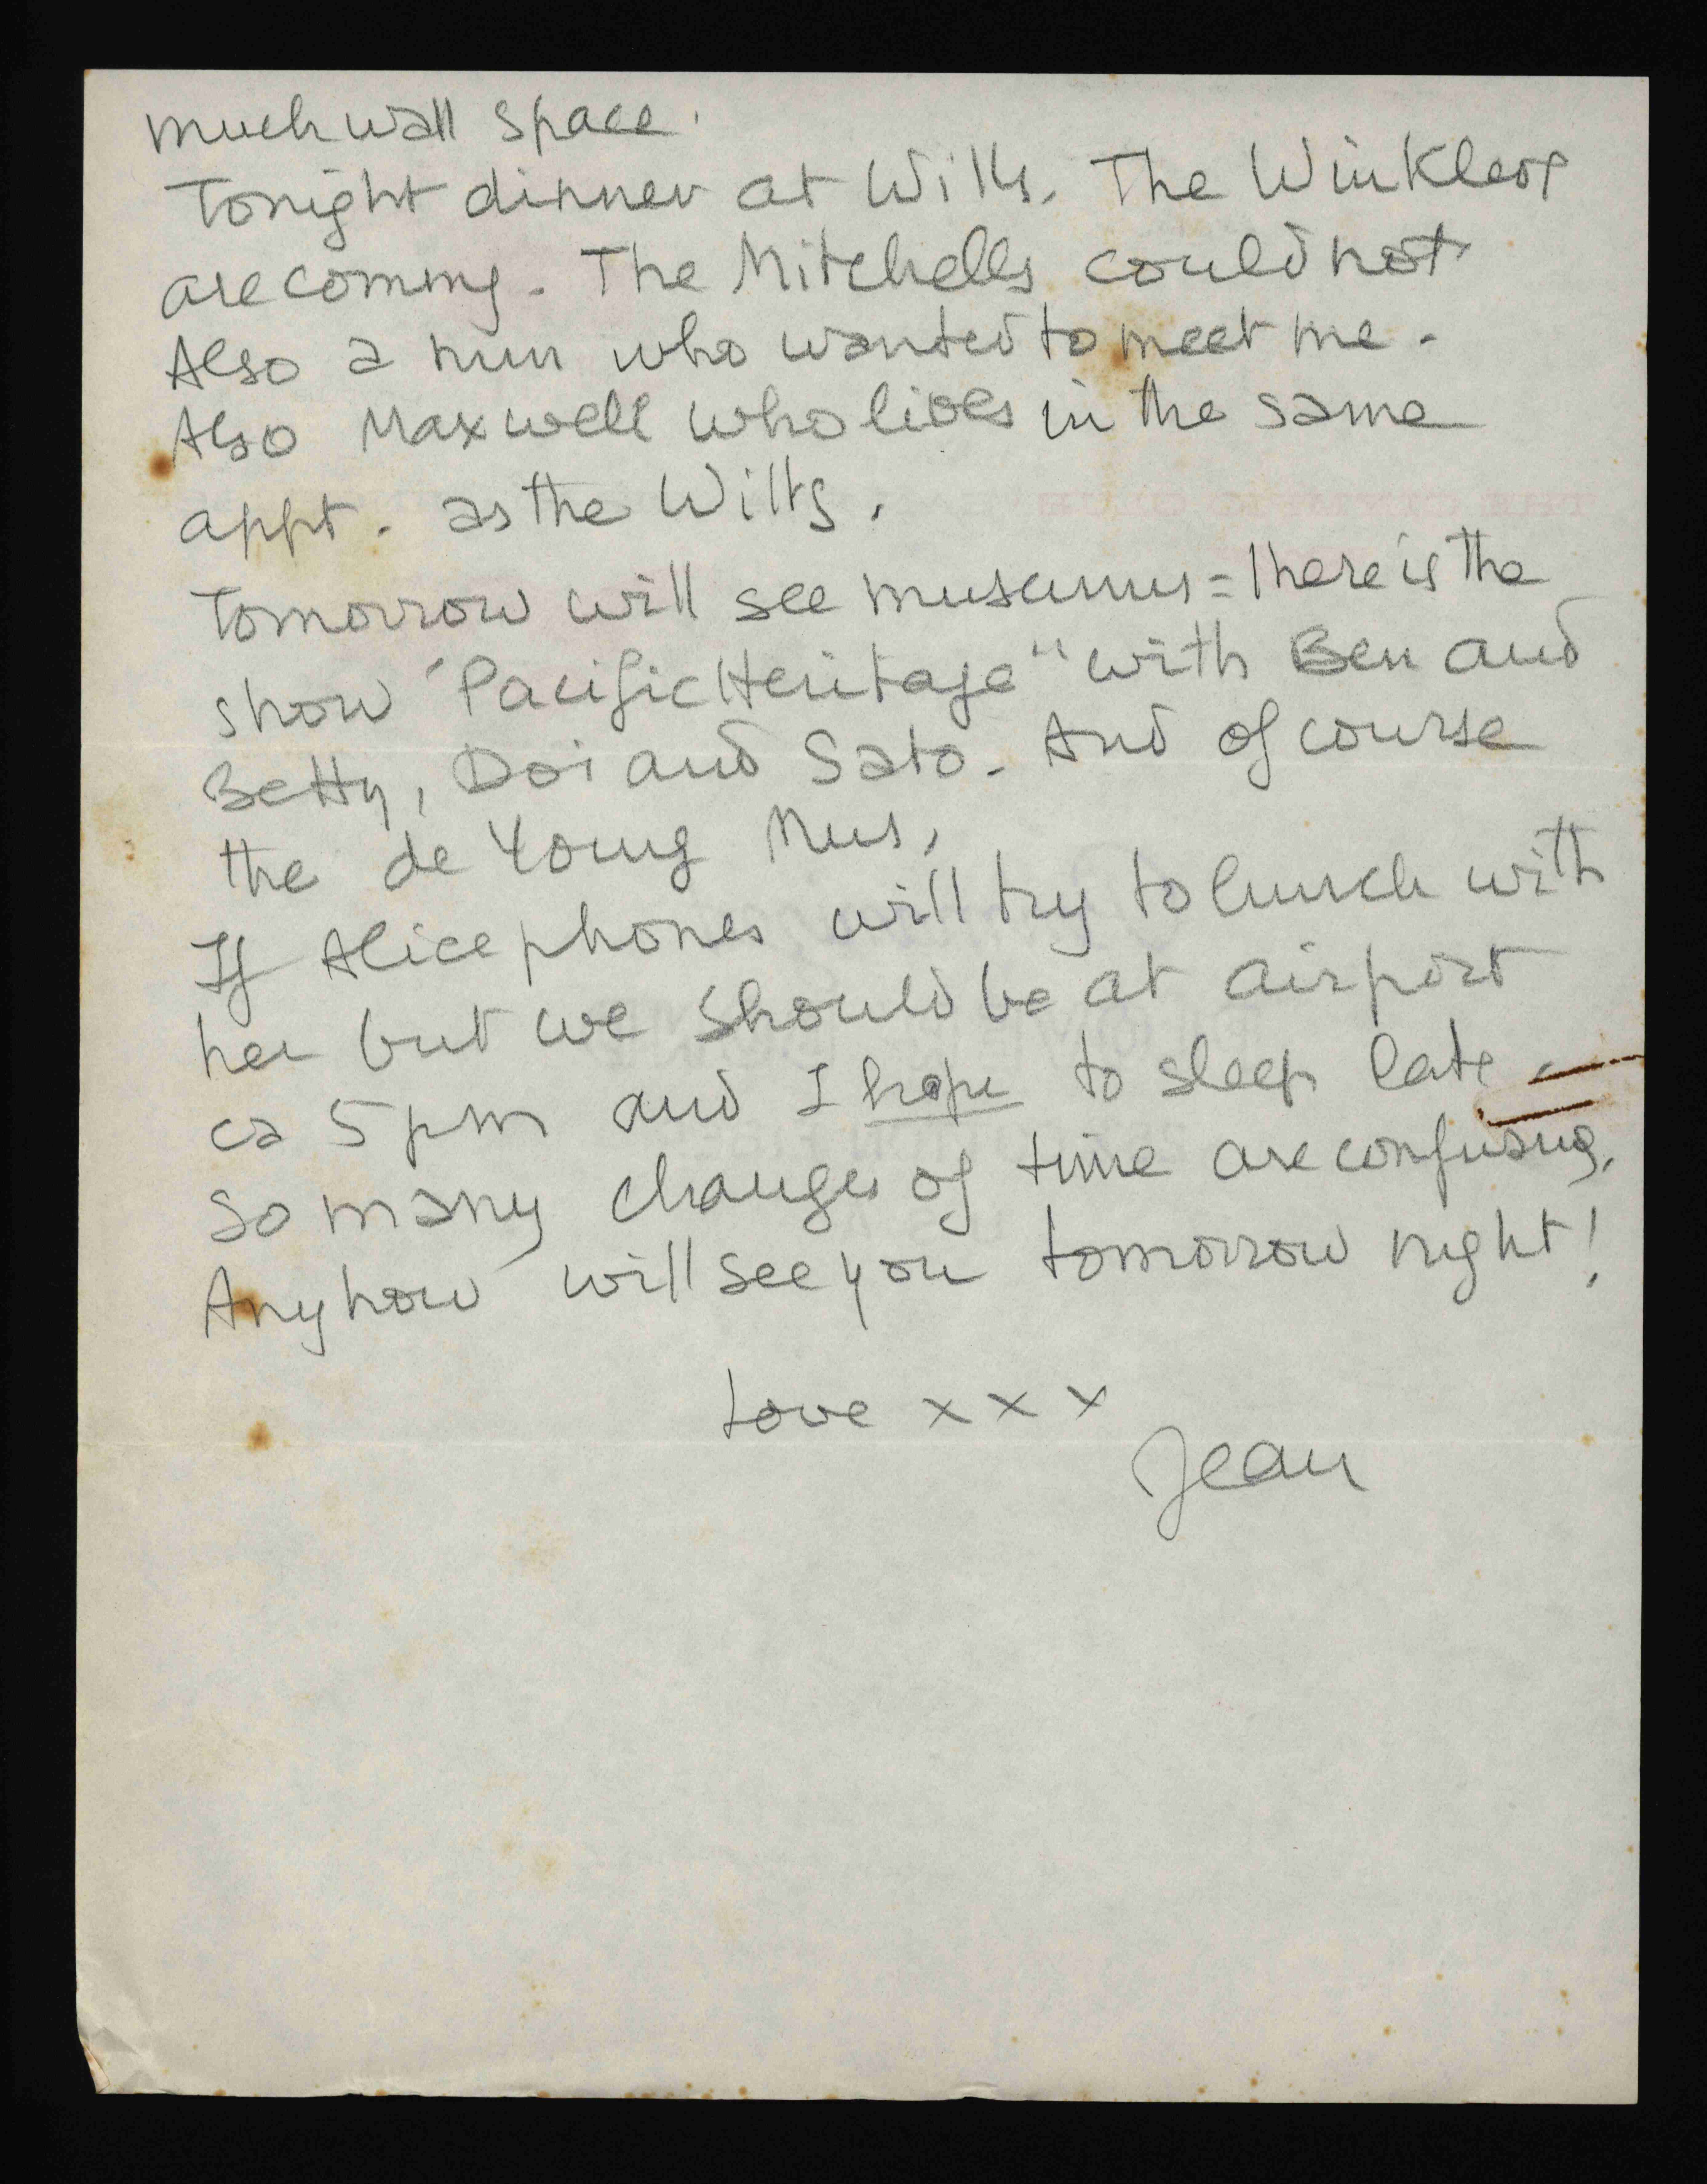 much wall space.
Tonight dinner at Wilts. The Winklers
are coming. The Mitchells could not
Also a nun who wanted to meet me.
Also Maxwell who lives in the same
appt. as the Wilts.
Tomorrow will see museums = There is the
show "Pacific Heritage" with Ben and
Betty, Doi and Sato. And of course
the de Young Mus.
If Alice phones will try to lunch with
her but we should be at airport
ca 5 pm and I hope to sleep late.
So many changes of time are confusing.
Anyhow will see you tomorrow night!
Love x x x
Jean